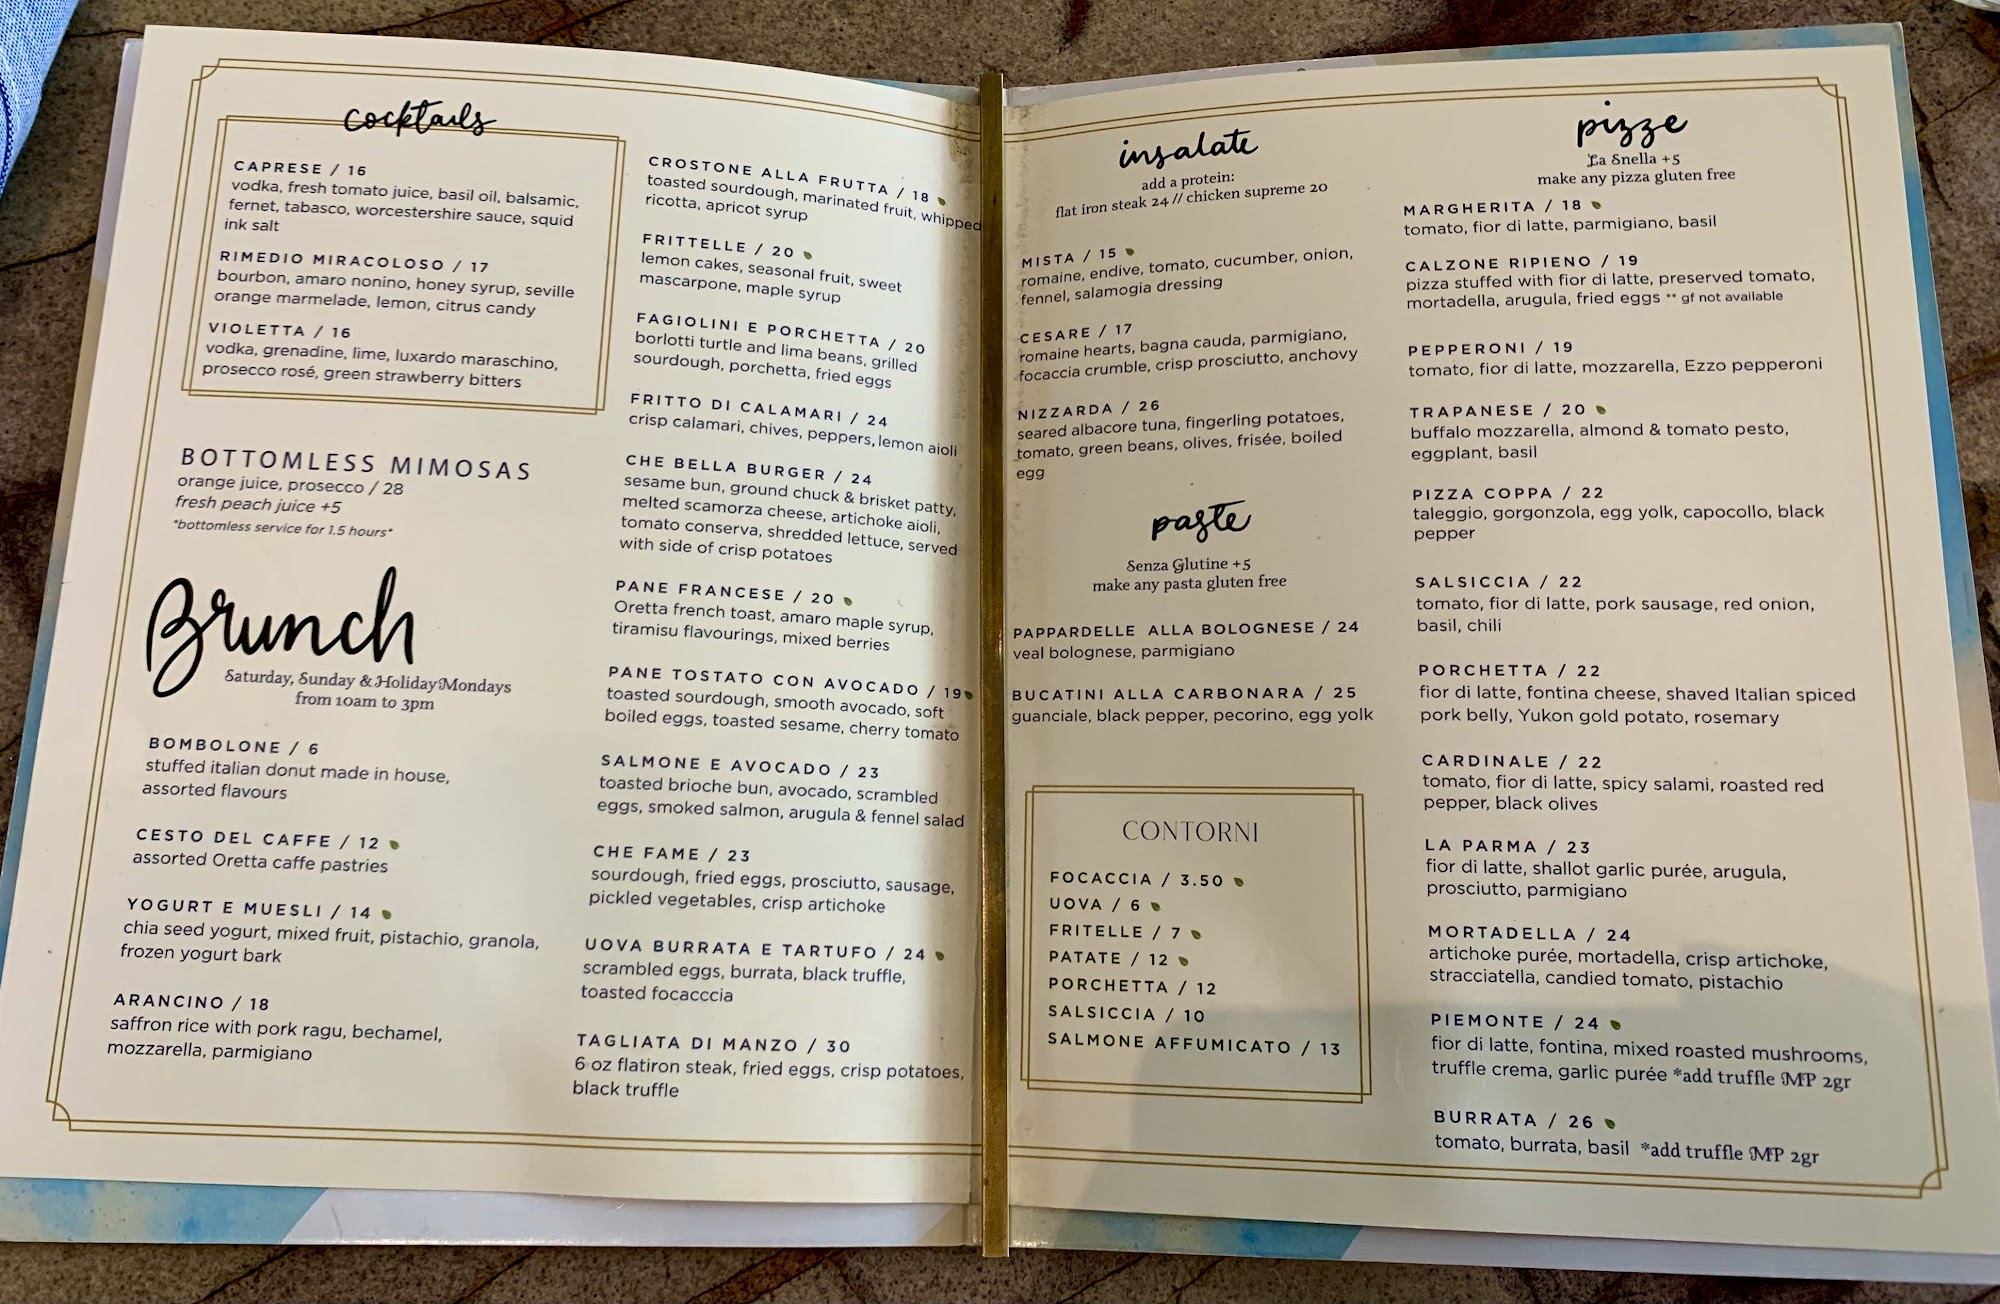 cocktails
CAPRESE / 16
vodka, fresh tomato juice, basil oil, balsamic,
fernet, tabasco, worcestershire sauce, squid
ink salt
RIMEDIO MIRACOLOSO / 17
bourbon, amaro nonino, honey syrup, seville
orange marmelade, lemon, citrus candy
VIOLETTA / 16
vodka, grenadine, lime, luxardo maraschino,
prosecco rosé, green strawberry bitters
BOTTOMLESS MIMOSAS
orange juice, prosecco / 28
fresh peach juice +5
*bottomless service for 1.5 hours*
Brunch
Saturday, Sunday & Holiday Mondays
from 10am to 3pm
BOMBOLONE / 6
stuffed italian donut made in house,
assorted flavours
CESTO DEL CAFFE / 12
assorted Oretta caffe pastries
YOGURT E MUESLI / 14
chia seed yogurt, mixed fruit, pistachio, granola,
frozen yogurt bark
ARANCINO / 18
saffron rice with pork ragu, bechamel,
mozzarella, parmigiano
CROSTONE ALLA FRUTTA / 18
toasted sourdough, marinated fruit, whipped
ricotta, apricot syrup
FRITTELLE / 20
lemon cakes, seasonal fruit, sweet
mascarpone, maple syrup
FAGIOLINI E PORCHETTA / 20
borlotti turtle and lima beans, grilled
sourdough, porchetta, fried eggs
FRITTO DI CALAMARI / 24
crisp calamari, chives, peppers, lemon aioli
CHE BELLA BURGER / 24
sesame bun, ground chuck & brisket patty,
melted scamorza cheese, artichoke aioli,
tomato conserva, shredded lettuce, served
with side of crisp potatoes
PANE FRANCESE / 20
Oretta french toast, amaro maple syrup,
tiramisu flavourings, mixed berries
PANE TOSTATO CON AVOCADO / 19
toasted sourdough, smooth avocado, soft
boiled eggs, toasted sesame, cherry tomato
SALMONE E AVOCADO / 23
toasted brioche bun, avocado, scrambled
eggs, smoked salmon, arugula & fennel salad
CHE FAME / 23
sourdough, fried eggs, prosciutto, sausage,
pickled vegetables, crisp artichoke
UOVA BURRATA E TARTUFO / 24
scrambled eggs, burrata, black truffle,
toasted focacccia
TAGLIATA DI MANZO / 30
6 oz flatiron steak, fried eggs, crisp potatoes,
black truffle
insalate
add a protein:
flat iron steak 24 // chicken supreme 20
MISTA / 15
romaine, endive, tomato, cucumber, onion,
fennel, salamogia dressing
CESARE / 17
romaine hearts, bagna cauda, parmigiano,
focaccia crumble, crisp prosciutto, anchovy
NIZZARDA / 26
seared albacore tuna, fingerling potatoes,
tomato, green beans, olives, frisée, boiled
egg
paste
Senza Glutine +5
make any pasta gluten free
PAPPARDELLE ALLA BOLOGNESE / 24
veal bolognese, parmigiano
BUCATINI ALLA CARBONARA / 25
guanciale, black pepper, pecorino, egg yolk
CONTORNI
FOCACCIA / 3.50
UOVA / 6
FRITELLE / 7
PATATE / 12
PORCHETTA / 12
SALSICCIA / 10
SALMONE AFFUMICATO / 13
pizze
La Snella +5
make any pizza gluten free
MARGHERITA / 18
tomato, fior di latte, parmigiano, basil
CALZONE RIPIENO / 19
pizza stuffed with fior di latte, preserved tomato,
mortadella, arugula, fried eggs ** gf not available
PEPPERONI / 19
tomato, fior di latte, mozzarella, Ezzo pepperoni
TRAPANESE / 20
buffalo mozzarella, almond & tomato pesto,
eggplant, basil
PIZZA COPPA / 22
taleggio, gorgonzola, egg yolk, capocollo, black
pepper
SALSICCIA / 22
tomato, fior di latte, pork sausage, red onion,
basil, chili
PORCHETTA / 22
fior di latte, fontina cheese, shaved Italian spiced
pork belly, Yukon gold potato, rosemary
CARDINALE / 22
tomato, fior di latte, spicy salami, roasted red
pepper, black olives
LA PARMA / 23
fior di latte, shallot garlic purée, arugula,
prosciutto, parmigiano
MORTADELLA / 24
artichoke purée, mortadella, crisp artichoke,
stracciatella, candied tomato, pistachio
PIEMONTE / 24
fior di latte, fontina, mixed roasted mushrooms,
truffle crema, garlic purée *add truffle MP 2gr
BURRATA / 26
tomato, burrata, basil *add truffle MP 2gr